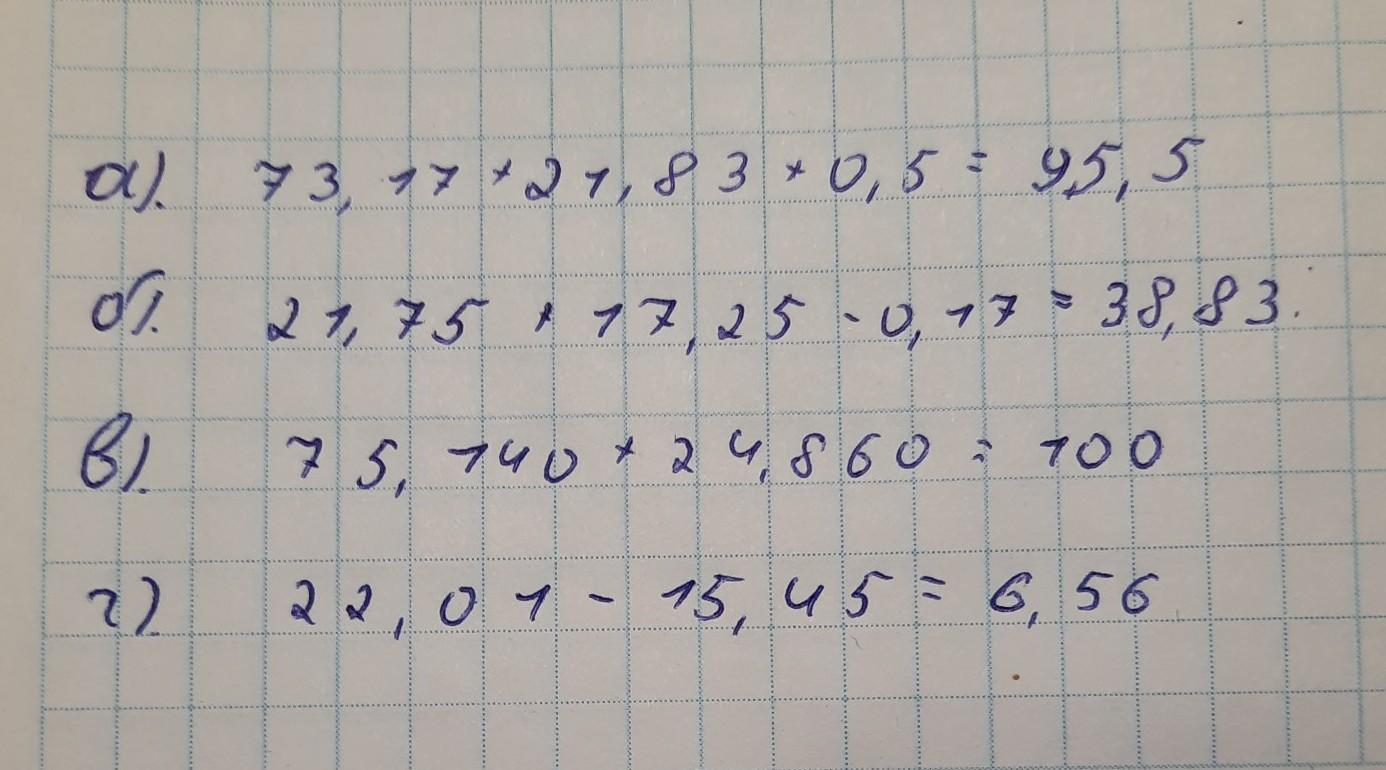 а). 73,17 + 21,83 + 0,5 = 95,5
б). 21,75 + 17,25 - 0,17 = 38,83.
в). 75,140 + 24,860 = 100
г). 22,01 - 15,45 = 6,56